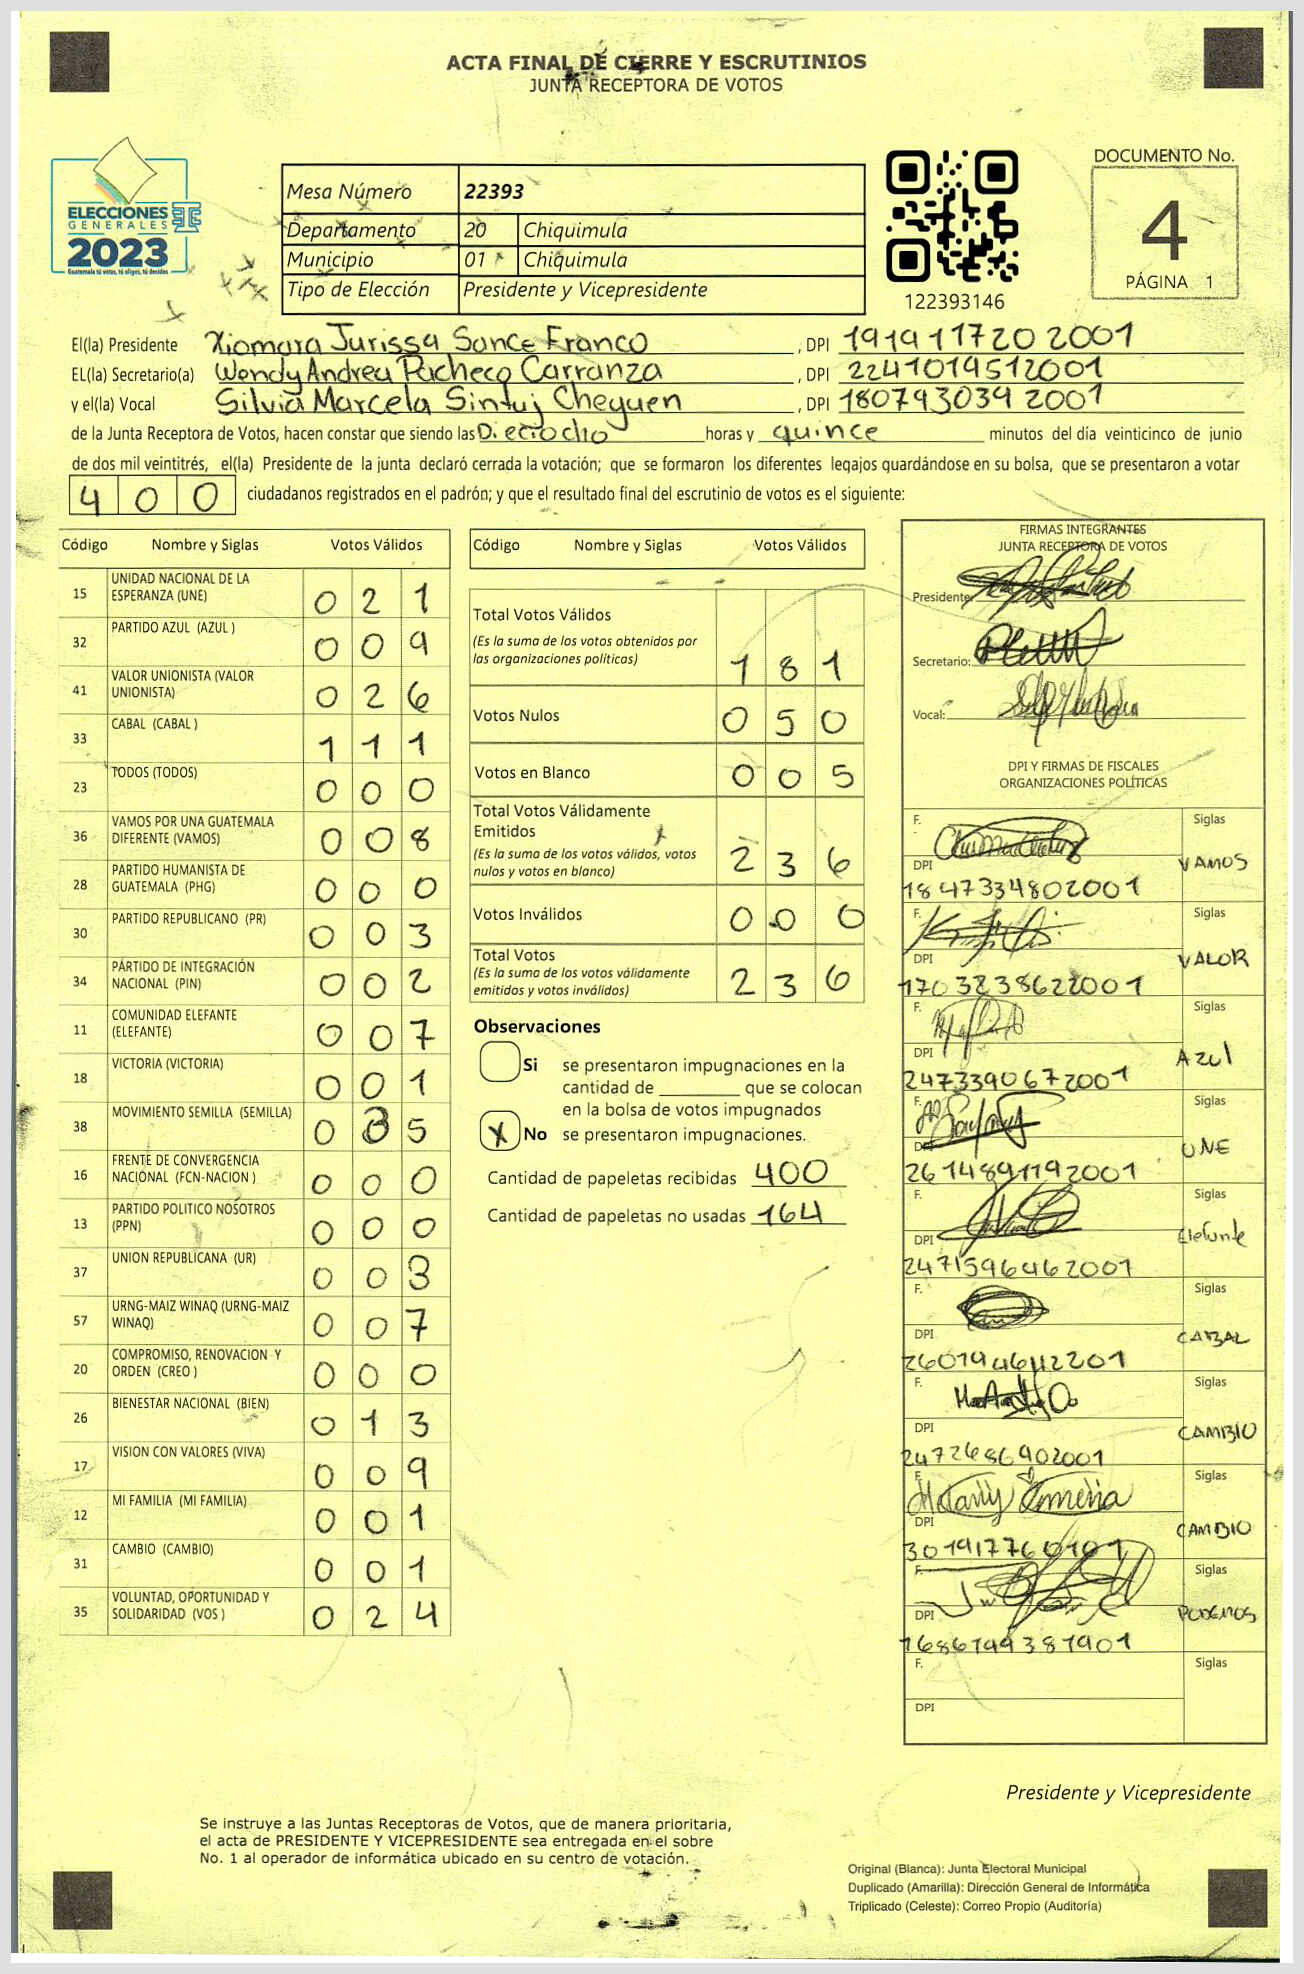 ACTA FINAL DE CIERRE Y ESCRUTINIOS
JUNTA RECEPTORA DE VOTOS
ELECCIONES
GENERALES
2023
Guatemala tú votas, tú eliges, tú decides
Mesa Número 22393
Departamento 20 Chiquimula
Municipio 01 Chiquimula
Tipo de Elección Presidente y Vicepresidente
122393146
DOCUMENTO No.
4
PÁGINA 1
El(la) Presidente Xiomara Jurissa Sance Franco, DPI 1919117202001
EL(la) Secretario(a) Wendy Andrea Pacheco Carranza, DPI 2241019512001
y el(la) Vocal Silvia Marcela Sintuj Cheguen, DPI 1807930392001
de la Junta Receptora de Votos, hacen constar que siendo las Dieciocho horas y quince minutos del día veinticinco de junio
de dos mil veintitrés, el(la) Presidente de la junta declaró cerrada la votación; que se formaron los diferentes legajos guardándose en su bolsa, que se presentaron a votar
400 ciudadanos registrados en el padrón; y que el resultado final del escrutinio de votos es el siguiente:
Código Nombre y Siglas Votos Válidos
15 UNIDAD NACIONAL DE LA ESPERANZA (UNE) 0 2 1
32 PARTIDO AZUL (AZUL ) 0 0 9
41 VALOR UNIONISTA (VALOR UNIONISTA) 0 2 6
33 CABAL (CABAL ) 1 1 1
23 TODOS (TODOS) 0 0 0
36 VAMOS POR UNA GUATEMALA DIFERENTE (VAMOS) 0 0 8
28 PARTIDO HUMANISTA DE GUATEMALA (PHG) 0 0 0
30 PARTIDO REPUBLICANO (PR) 0 0 3
34 PARTIDO DE INTEGRACIÓN NACIONAL (PIN) 0 0 2
11 COMUNIDAD ELEFANTE (ELEFANTE) 0 0 7
18 VICTORIA (VICTORIA) 0 0 1
38 MOVIMIENTO SEMILLA (SEMILLA) 0 3 5
16 FRENTE DE CONVERGENCIA NACIONAL (FCN-NACION ) 0 0 0
13 PARTIDO POLITICO NOSOTROS (PPN) 0 0 0
37 UNION REPUBLICANA (UR) 0 0 3
57 URNG-MAIZ WINAQ (URNG-MAIZ WINAQ) 0 0 7
20 COMPROMISO, RENOVACION Y ORDEN (CREO ) 0 0 0
26 BIENESTAR NACIONAL (BIEN) 0 1 3
17 VISION CON VALORES (VIVA) 0 0 9
12 MI FAMILIA (MI FAMILIA) 0 0 1
31 CAMBIO (CAMBIO) 0 0 1
35 VOLUNTAD, OPORTUNIDAD Y SOLIDARIDAD (VOS ) 0 2 4
Código Nombre y Siglas Votos Válidos
Total Votos Válidos
(Es la suma de los votos obtenidos por
las organizaciones políticas) 1 8 1
Votos Nulos 0 5 0
Votos en Blanco 0 0 5
Total Votos Válidamente
Emitidos
(Es la suma de los votos válidos, votos
nulos y votos en blanco) 2 3 6
Votos Inválidos 0 0 0
Total Votos
(Es la suma de los votos válidamente
emitidos y votos inválidos) 2 3 6
Observaciones
Si se presentaron impugnaciones en la
cantidad de ________ que se colocan
en la bolsa de votos impugnados
X No se presentaron impugnaciones.
Cantidad de papeletas recibidas 400
Cantidad de papeletas no usadas 164
FIRMAS INTEGRANTES
JUNTA RECEPTORA DE VOTOS
Presidente:
Secretario:
Vocal:
DPI Y FIRMAS DE FISCALES
ORGANIZACIONES POLÍTICAS
F. Siglas
DPI VAMOS
1847334802001
F. Siglas
DPI VALOR
1703238622001
F. Siglas
DPI Azul
2473390672001
F. Siglas
DPI UNE
2614891192001
F. Siglas
DPI Elefante
2471596462001
F. Siglas
DPI CABAL
F. Siglas
DPI CAMBIO
2472686902001
F. Siglas
DPI CAMBIO
301917760101
F. Siglas
DPI PODEMOS
1686199381901
F. Siglas
DPI
Presidente y Vicepresidente
Se instruye a las Juntas Receptoras de Votos, que de manera prioritaria,
el acta de PRESIDENTE Y VICEPRESIDENTE sea entregada en el sobre
No. 1 al operador de informática ubicado en su centro de votación.
Original (Blanca): Junta Electoral Municipal
Duplicado (Amarilla): Dirección General de Informática
Triplicado (Celeste): Correo Propio (Auditoría)